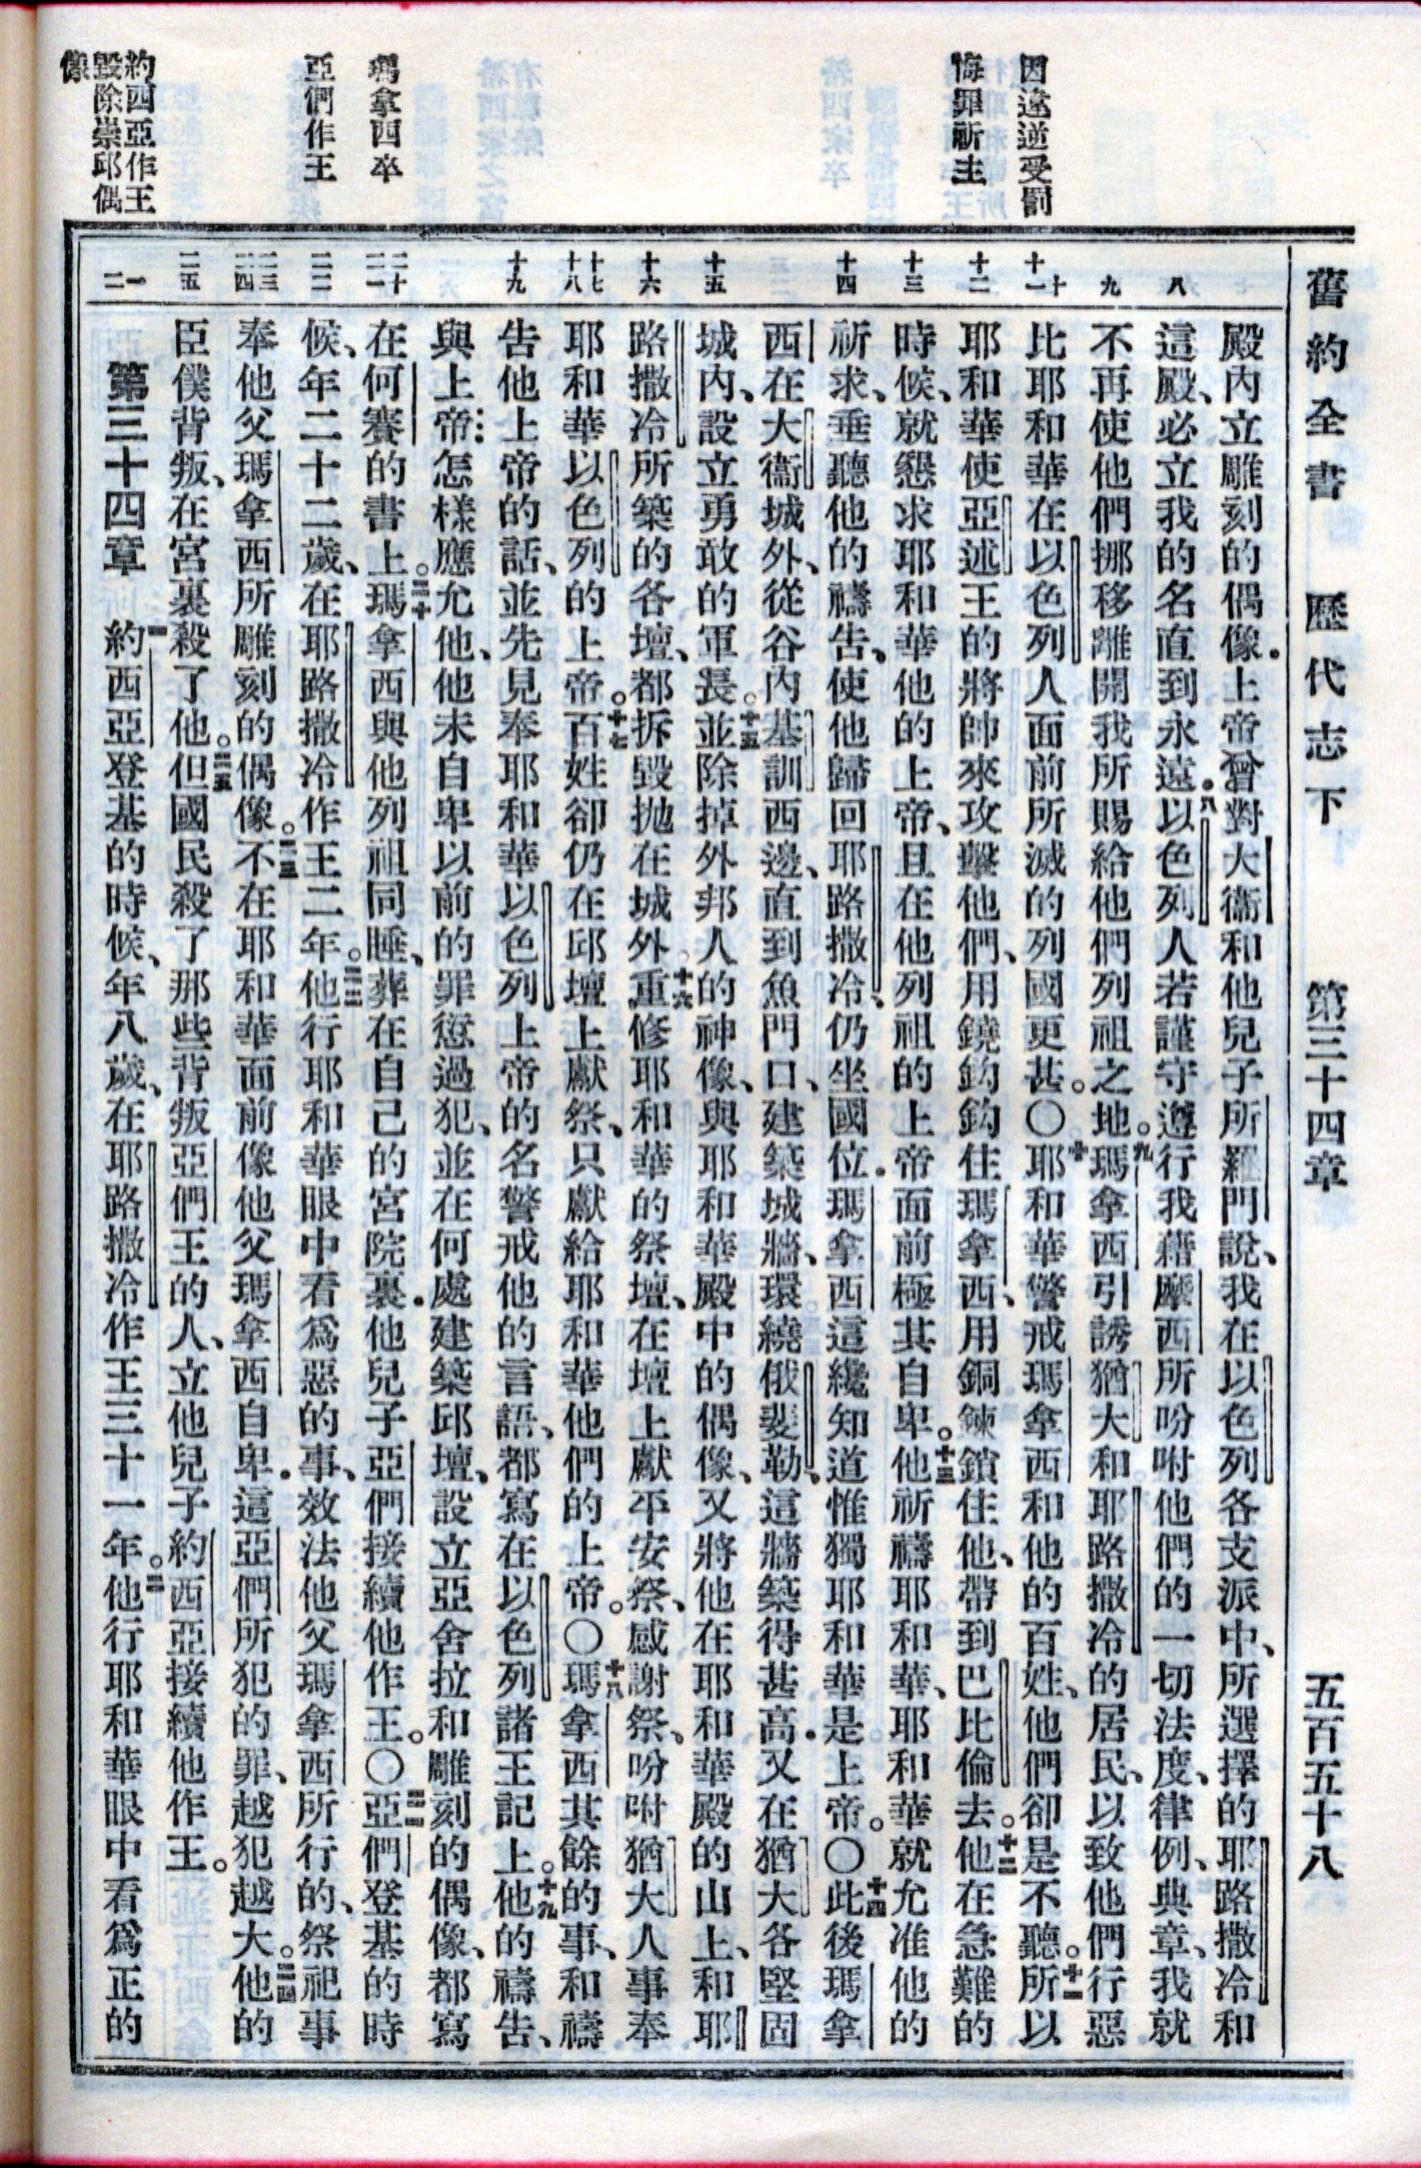 舊約全書　歷代志下　第三十四章　五百五十八
因違逆受罰
悔罪祈主
瑪拿西卒
亞們作王
約西亞作王
毀除崇邱偶
像
八
九
十
十一
十二
十三
十四
十五
十六
十七
十八
十九
二十
二一
二二
二三
二四
二五
一
二
殿內立雕刻的偶像．上帝曾對大衞和他兒子所羅門說、我在以色列各支派中、所選擇的耶路撒冷和
這殿、必立我的名直到永遠．八以色列人若謹守遵行我藉摩西所吩咐他們的一切法度、律例、典章、我就
不再使他們挪移離開我所賜給他們列祖之地。九瑪拿西引誘猶大和耶路撒冷的居民、以致他們行惡
比耶和華在以色列人面前所滅的列國更甚。○十耶和華警戒瑪拿西和他的百姓、他們卻是不聽。十一所以
耶和華使亞述王的將帥來攻擊他們、用鐃鈎鈎住瑪拿西、用銅鍊鎖住他、帶到巴比倫去。十二他在急難的
時候、就懇求耶和華他的上帝、且在他列祖的上帝面前極其自卑。十三他祈禱耶和華、耶和華就允准他的
祈求、垂聽他的禱告、使他歸回耶路撒冷、仍坐國位．瑪拿西這纔知道惟獨耶和華是上帝。○十四此後瑪拿
西在大衞城外、從谷內基訓西邊、直到魚門口、建築城牆、環繞俄斐勒、這牆築得甚高．又在猶大各堅固
城內、設立勇敢的軍長。十五並除掉外邦人的神像、與耶和華殿中的偶像、又將他在耶和華殿的山上、和耶
路撒冷所築的各壇、都拆毀抛在城外。十六重修耶和華的祭壇、在壇上獻平安祭、感謝祭、吩咐猶大人事奉
耶和華以色列的上帝。十七百姓卻仍在邱壇上獻祭、只獻給耶和華他們的上帝。○十八瑪拿西其餘的事、和禱
告他上帝的話、並先見奉耶和華以色列上帝的名警戒他的言語、都寫在以色列諸王記上。十九他的禱告、
與上帝怎樣應允他、他未自卑以前的罪愆過犯、並在何處建築邱壇、設立亞舍拉和雕刻的偶像、都寫
在何賽的書上。二十瑪拿西與他列祖同睡、葬在自己的宮院裏．他兒子亞們接續他作王。○二一亞們登基的時
候、年二十二歲、在耶路撒冷作王二年。二二他行耶和華眼中看爲惡的事、效法他父瑪拿西所行的、祭祀事
奉他父瑪拿西所雕刻的偶像。二三不在耶和華面前像他父瑪拿西自卑．這亞們所犯的罪、越犯越大。二四他的
臣僕背叛、在宮裏殺了他。二五但國民殺了那些背叛亞們王的人、立他兒子約西亞接續他作王。
第三十四章　一約西亞登基的時候、年八歲、在耶路撒冷作王三十一年。二他行耶和華眼中看爲正的